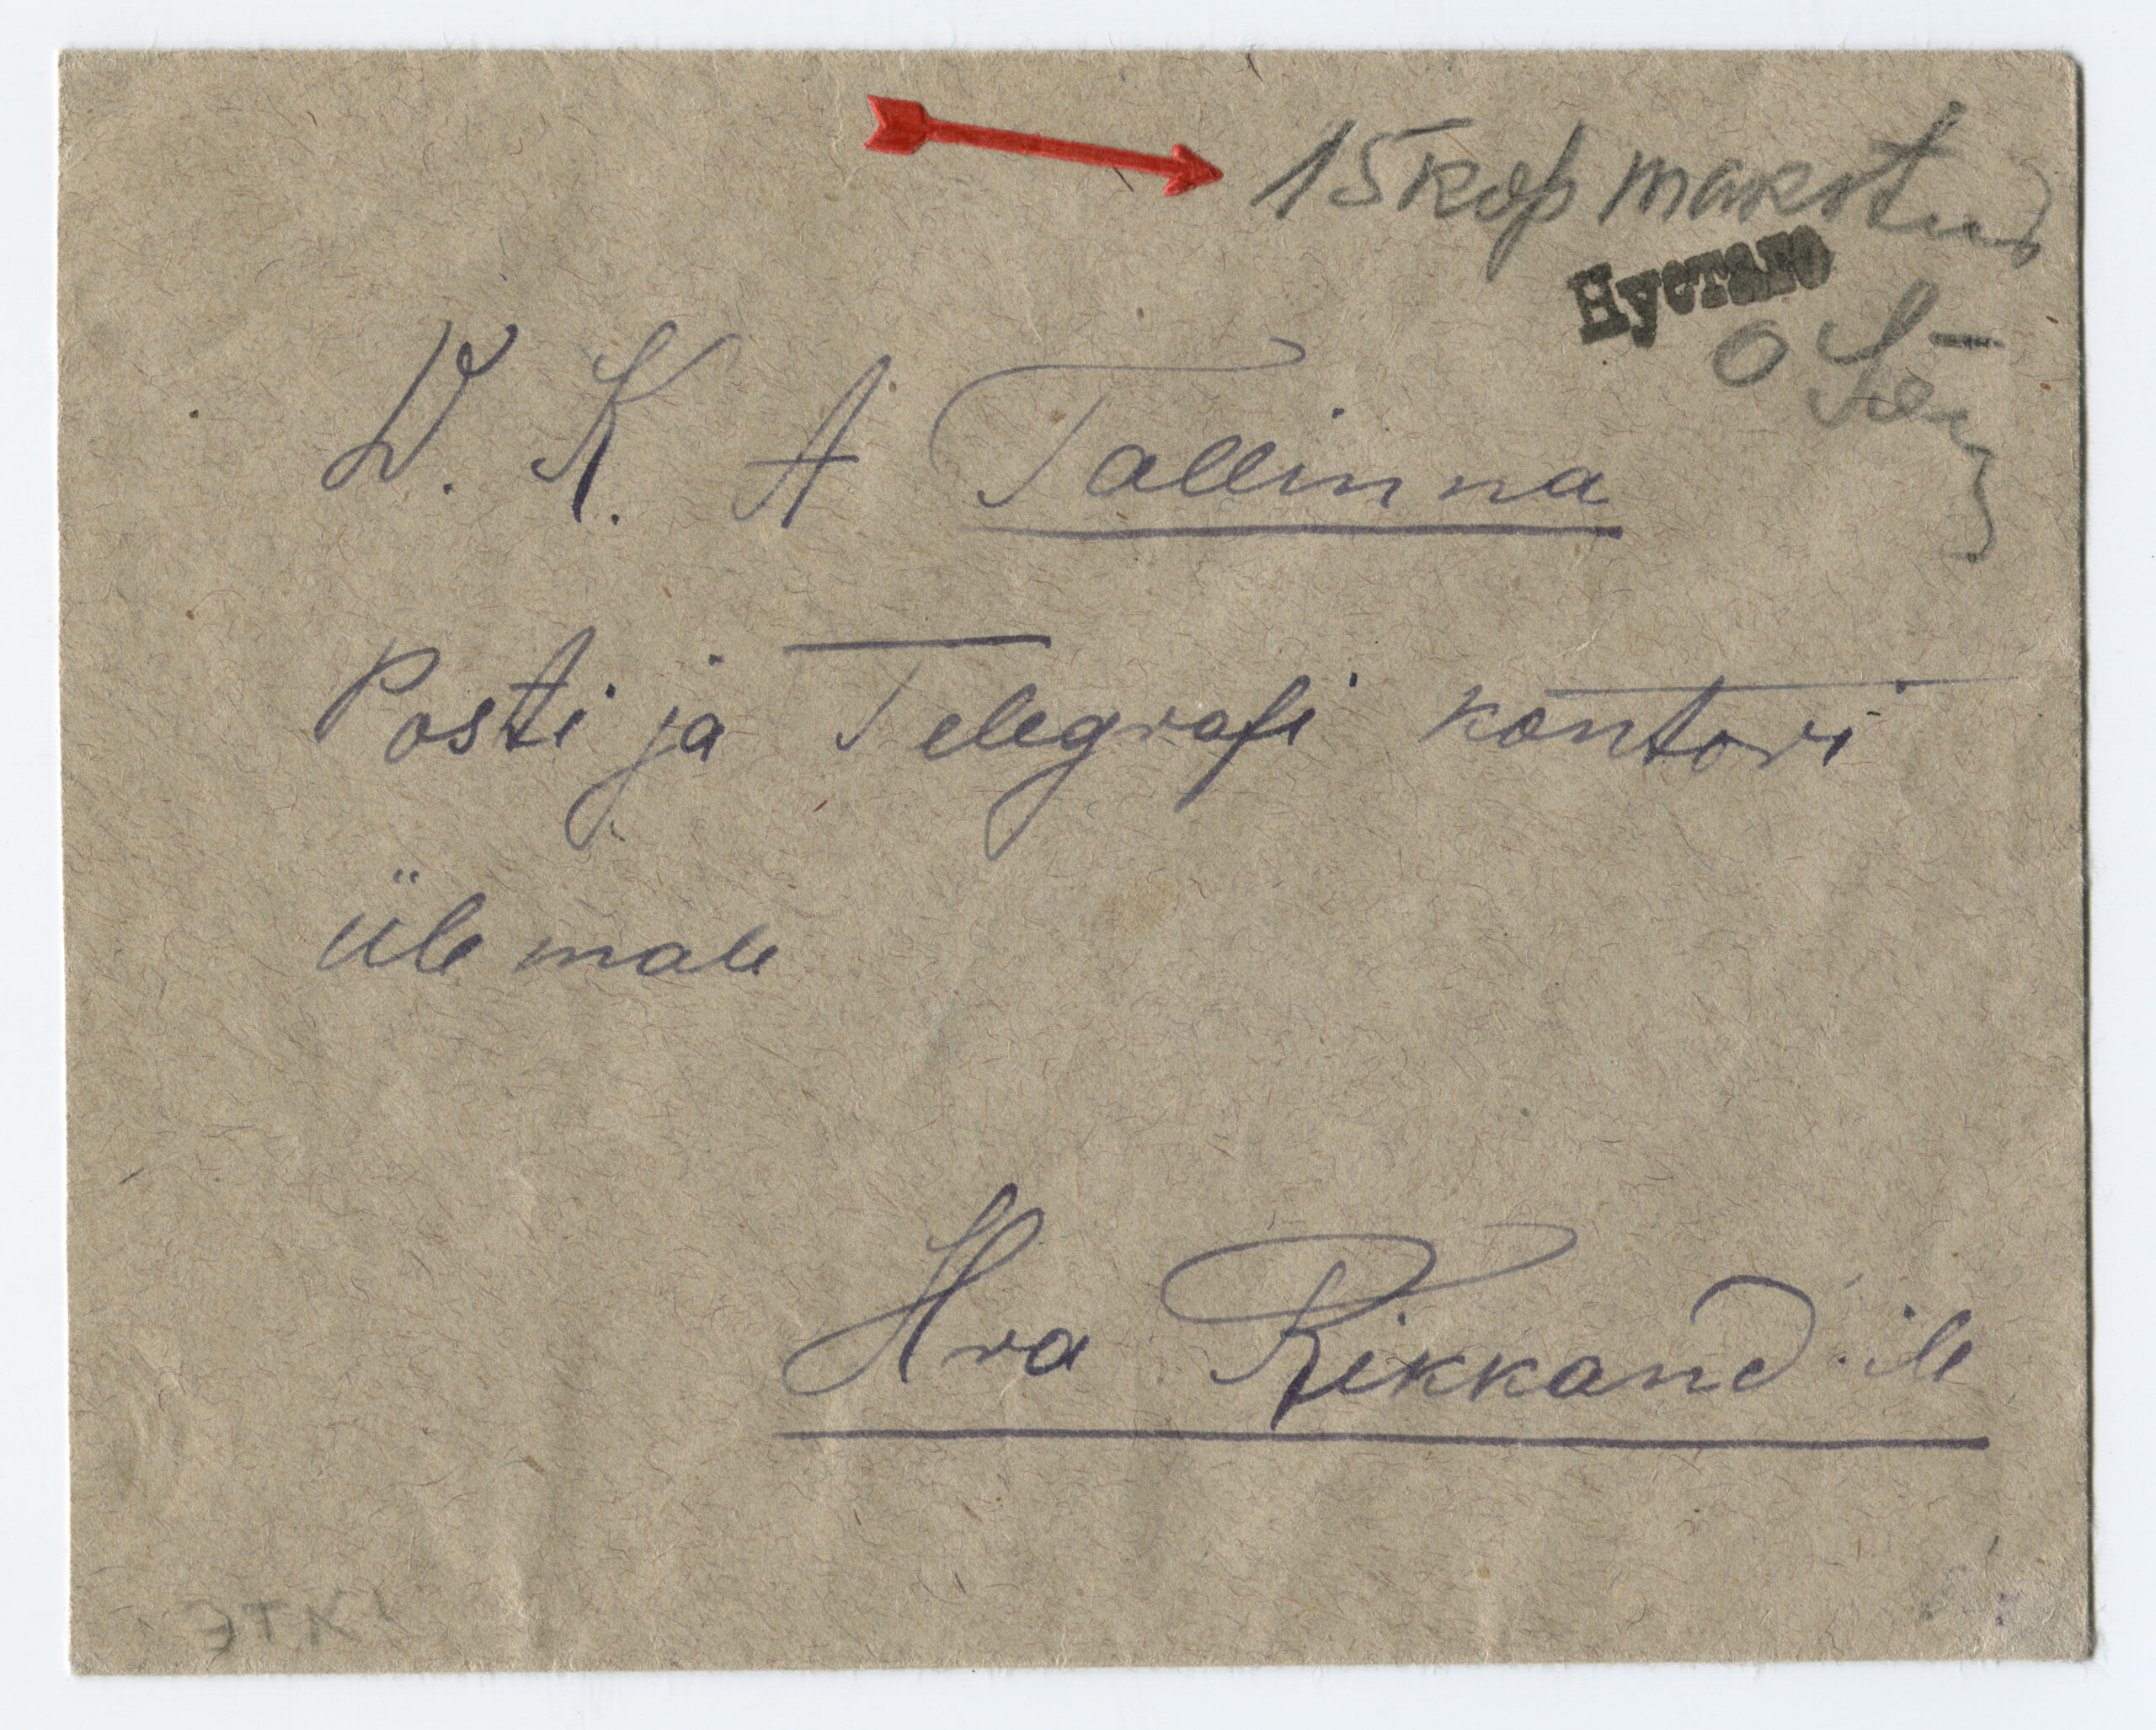 15 kop makstud
Нустаго
W. K. A Tallinna
Posti ja Telegrafi kontori
ülemale
Hra Rikkand·ile
ЭТК!